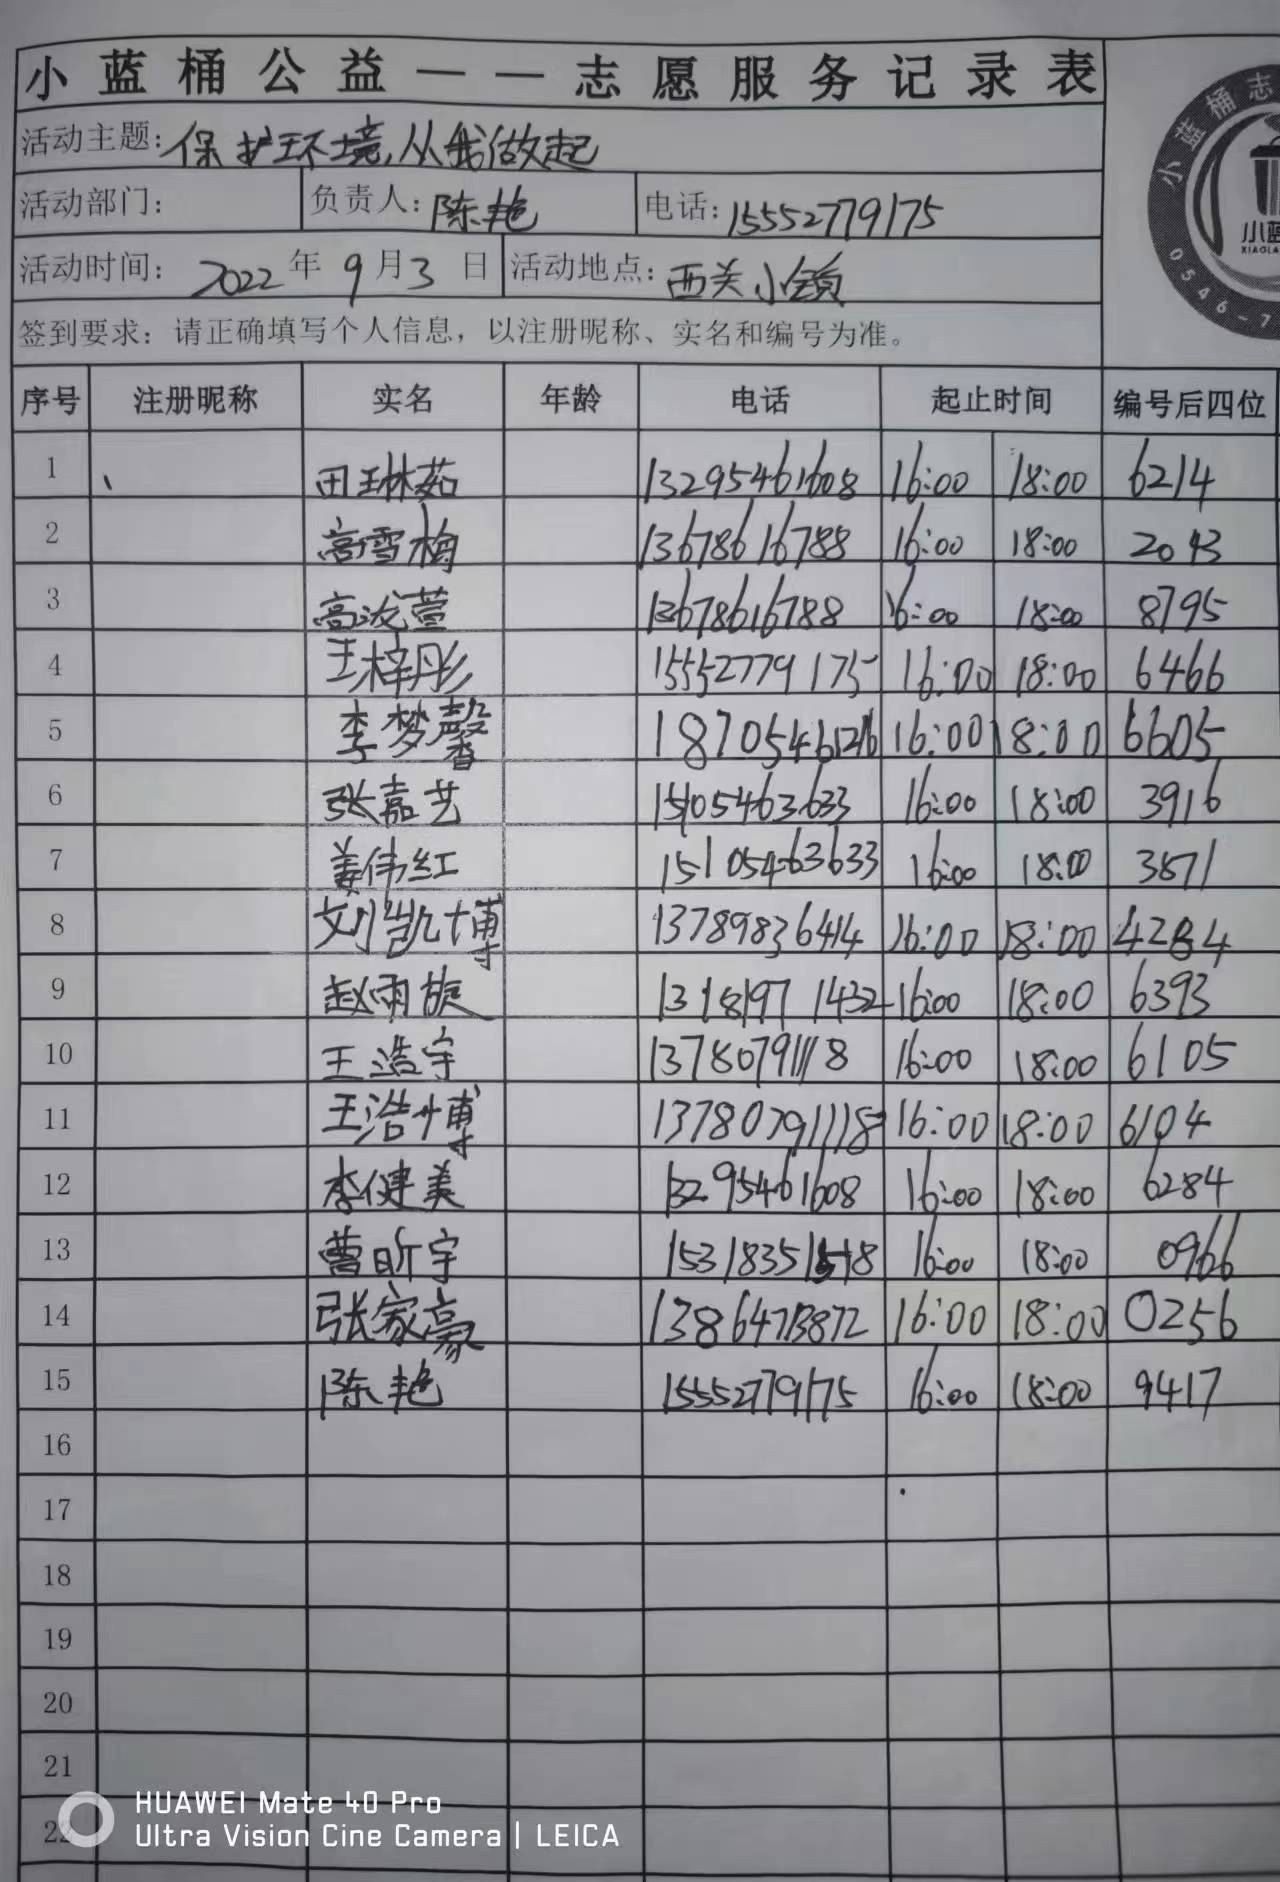 小蓝桶公益——志愿服务记录表
活动主题：保护环境，从我做起
活动部门： 负责人：陈艳 电话：15552779175
活动时间：2022年9月3日 活动地点：西关小镇
签到要求：请正确填写个人信息，以注册昵称、实名和编号为准。
序号 注册昵称 实名 年龄 电话 起止时间 编号后四位
1 田琳茹 13295461608 16:00 18:00 6214
2 高雪梅 13678616788 16:00 18:00 2043
3 高浤萱 13678616788 16:00 18:00 8795
4 王梓彤 15552779175 16:00 18:00 6466
5 李梦馨 18705461216 16:00 18:00 6605
6 张嘉艺 15105463633 16:00 18:00 3916
7 姜伟红 15105463633 16:00 18:00 3871
8 刘凯博 13789836414 16:00 18:00 4284
9 赵雨旋 13181971432 16:00 18:00 6393
10 王浩宇 13780791118 16:00 18:00 6105
11 王浩博 13780791118 16:00 18:00 6104
12 李健美 13295461608 16:00 18:00 6284
13 曹昕宇 15318351518 16:00 18:00 0966
14 张家豪 13864713872 16:00 18:00 0256
15 陈艳 15552779175 16:00 18:00 9417
16
17
18
19
20
21
22
小蓝桶志
小蓝
XIAOLA
0546-7
HUAWEI Mate 40 Pro
Ultra Vision Cine Camera | LEICA